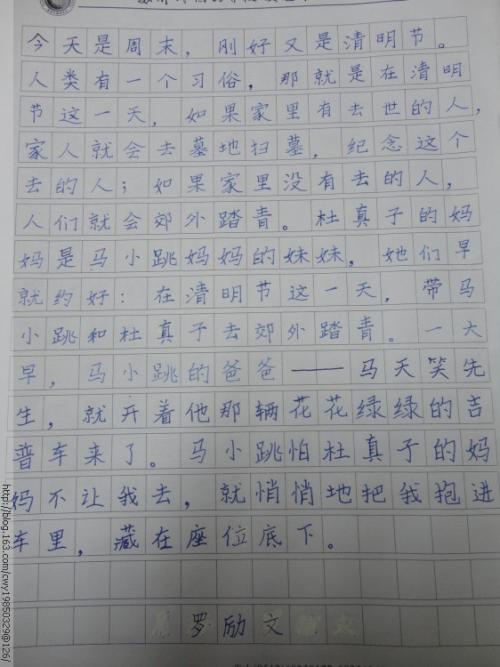 今天是周末，刚好又是清明节。
人类有一个习俗，那就是在清明
节这一天，如果家里有去世的人，
家人就会去墓地扫墓，纪念这个
去的人；如果家里没有去的人，
人们就会郊外踏青。杜真子的妈
妈是马小跳妈妈的妹妹，她们早
就约好：在清明节这一天，带马
小跳和杜真子去郊外踏青。一大
早，马小跳的爸爸——马天笑先
生，就开着他那辆花花绿绿的吉
普车来了。马小跳怕杜真子的妈
妈不让我去，就悄悄地把我抱进
车里，藏在座位底下。
罗励文
http://blog.163.com/cwy19850329@126/